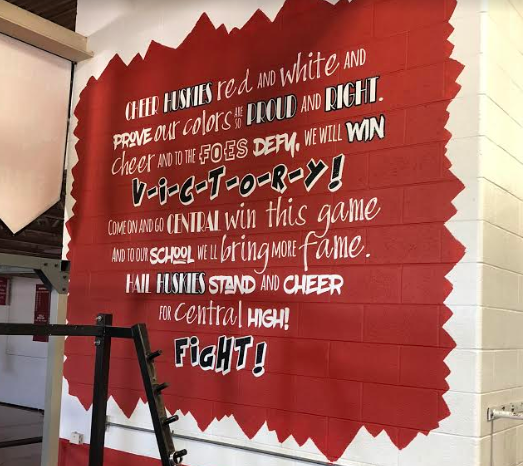 CHEER HUSKIES red AND white AND
PROVE our colors ARE SO PROUD AND RIGHT.
cheer AND TO THE FOES DEFY, WE WILL WIN
V-I-C-T-O-R-Y!
COME ON AND GO CENTRAL win this game
AND TO OUR SCHOOL WE LL bring MORE fame.
HAIL HUSKIES STAND AND CHEER
FOR Central HIGH!
FiGHT!